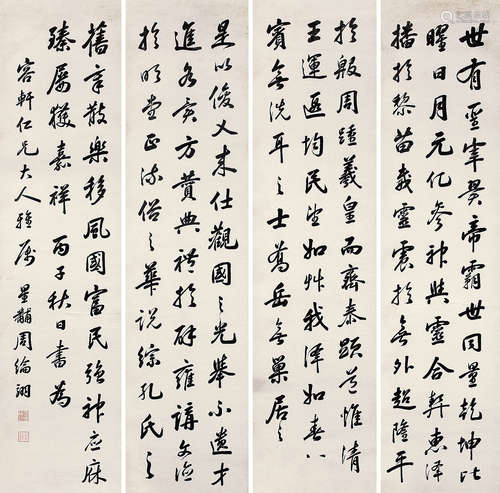 世有聖宰翼帝霸世同量乾坤比
曜日月元化參神與靈合契惠澤
播於黎苗威靈震於無外超隆平
於殷周踵羲皇而齊泰顯道惟清
王運遐均民望如艸我澤如春
賓無洗耳之士喬岳無巢居之
是以俊乂來仕觀國之光舉不遺才
進各方贊典禮於辟雍講文德
於明堂正流俗之華說綜孔氏之
舊章散樂移風國富民強神應庥
臻屢獲嘉祥 丙子秋日書為
容軒仁兄大人雅屬 星黼周